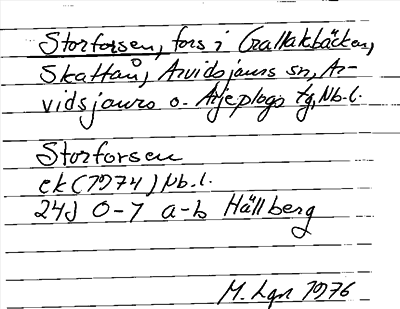 Storforsen, fors i Grallakbäcken,
Skattån, Arvidsjaurs sn, Ar-
vidsjaurs o. Arjeplogs tg, Nb.l.
Storforsen
ek (1974) Nb.l.
24J 0-7 a-b Hällberg
M. Lgn 1976